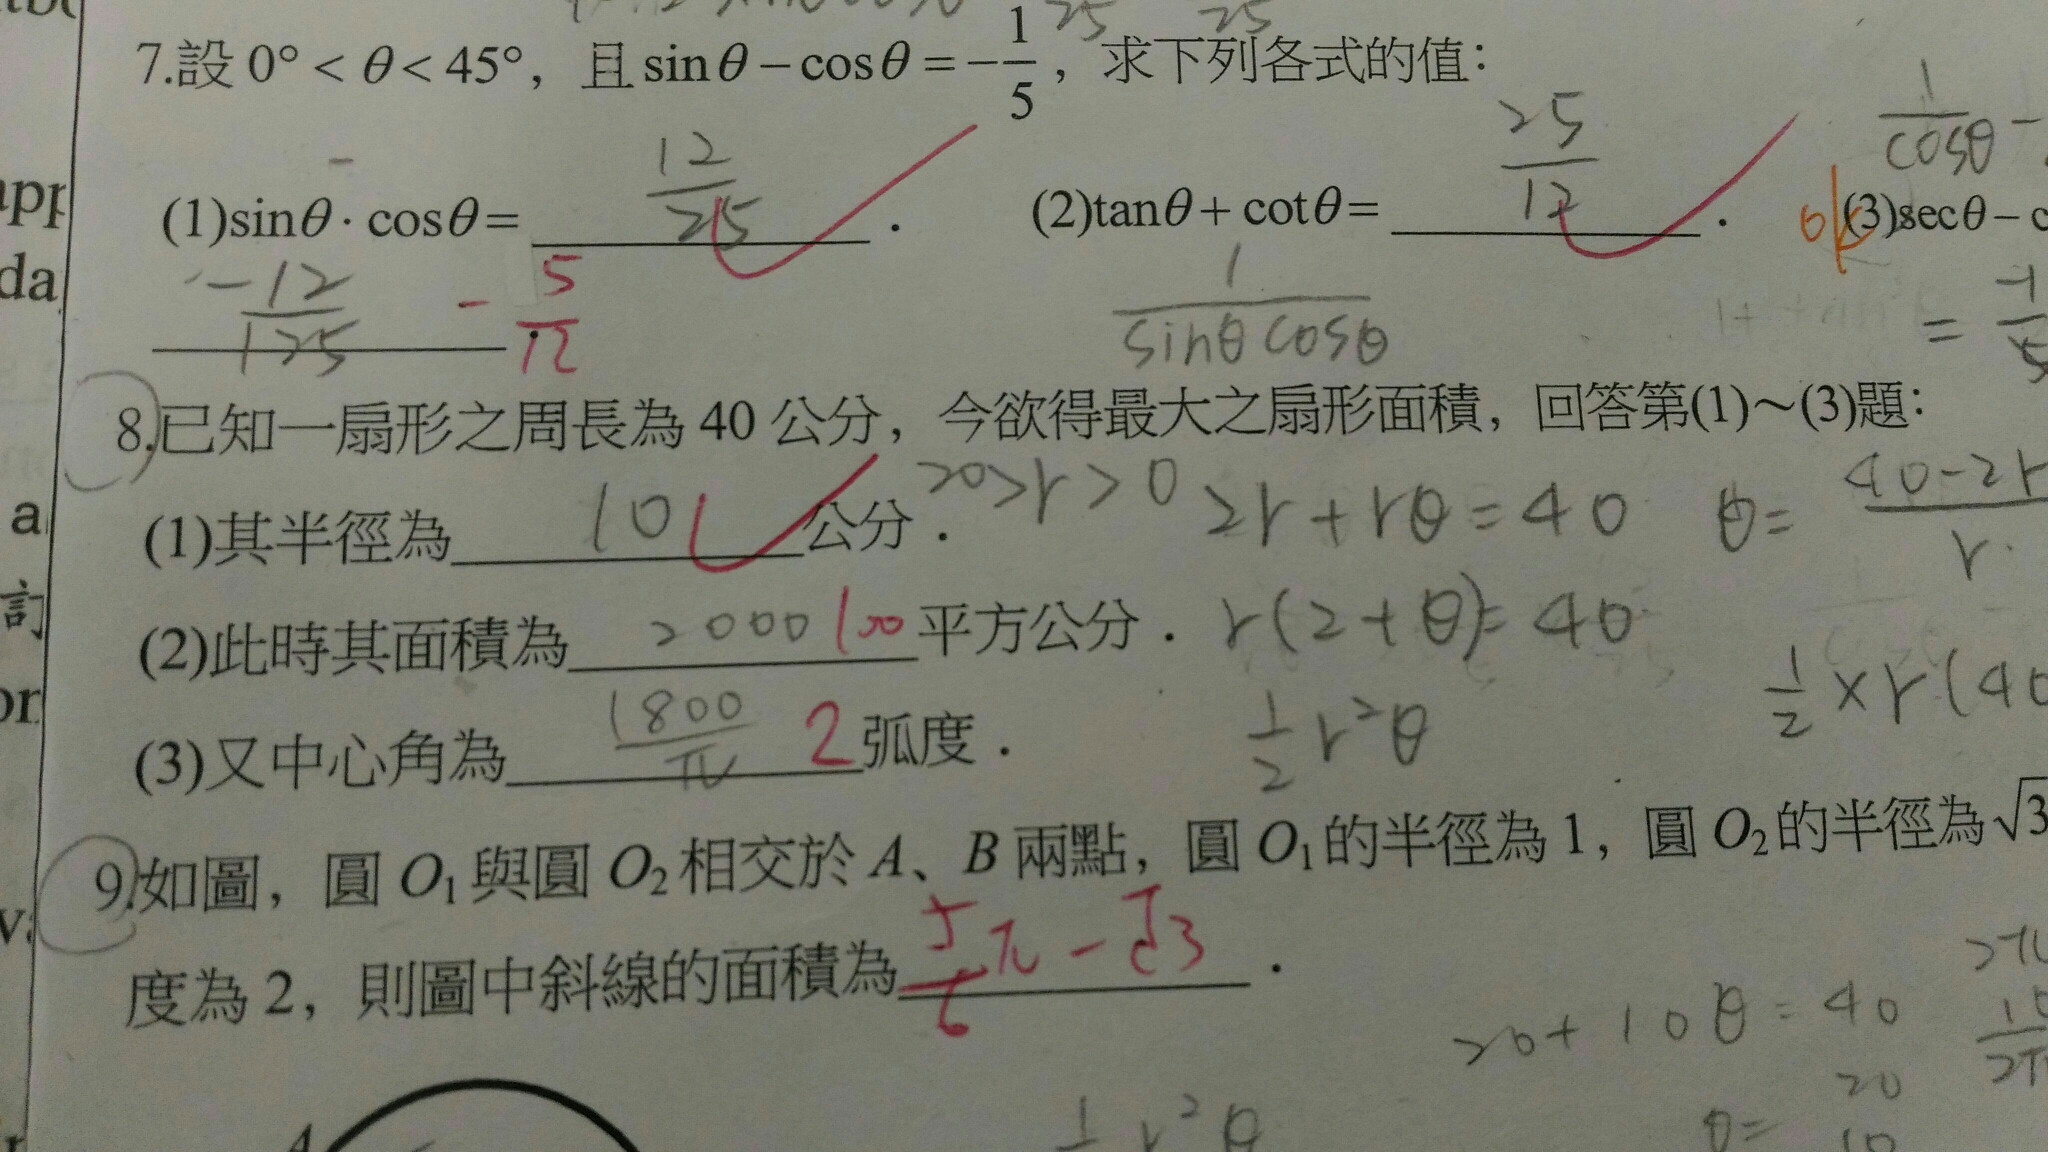 7.設 0° < θ < 45°，且 sinθ − cosθ = −1/5，求下列各式的值：
(1)sinθ · cosθ = 12/25 .
(2)tanθ + cotθ = 25/12 .
1/cosθ −
ok
(3)secθ − c
−12/125 −5/12
1/(sinθ cosθ)
8.已知一扇形之周長為 40 公分，今欲得最大之扇形面積，回答第(1)～(3)題：
(1)其半徑為 10 公分．
20>r>0
2r + rθ = 40
θ = (40−2r)/r
(2)此時其面積為 2000 100 平方公分．
r(2+θ) = 40
1/2 × r(40
(3)又中心角為 1800/π 2 弧度．
1/2 r²θ
9.如圖，圓 O₁與圓 O₂相交於 A、B 兩點，圓 O₁的半徑為 1，圓 O₂的半徑為√3
度為 2，則圖中斜線的面積為 5/6 π − √3 .
20 + 10θ = 40
20
θ = 10
A
1 r²θ